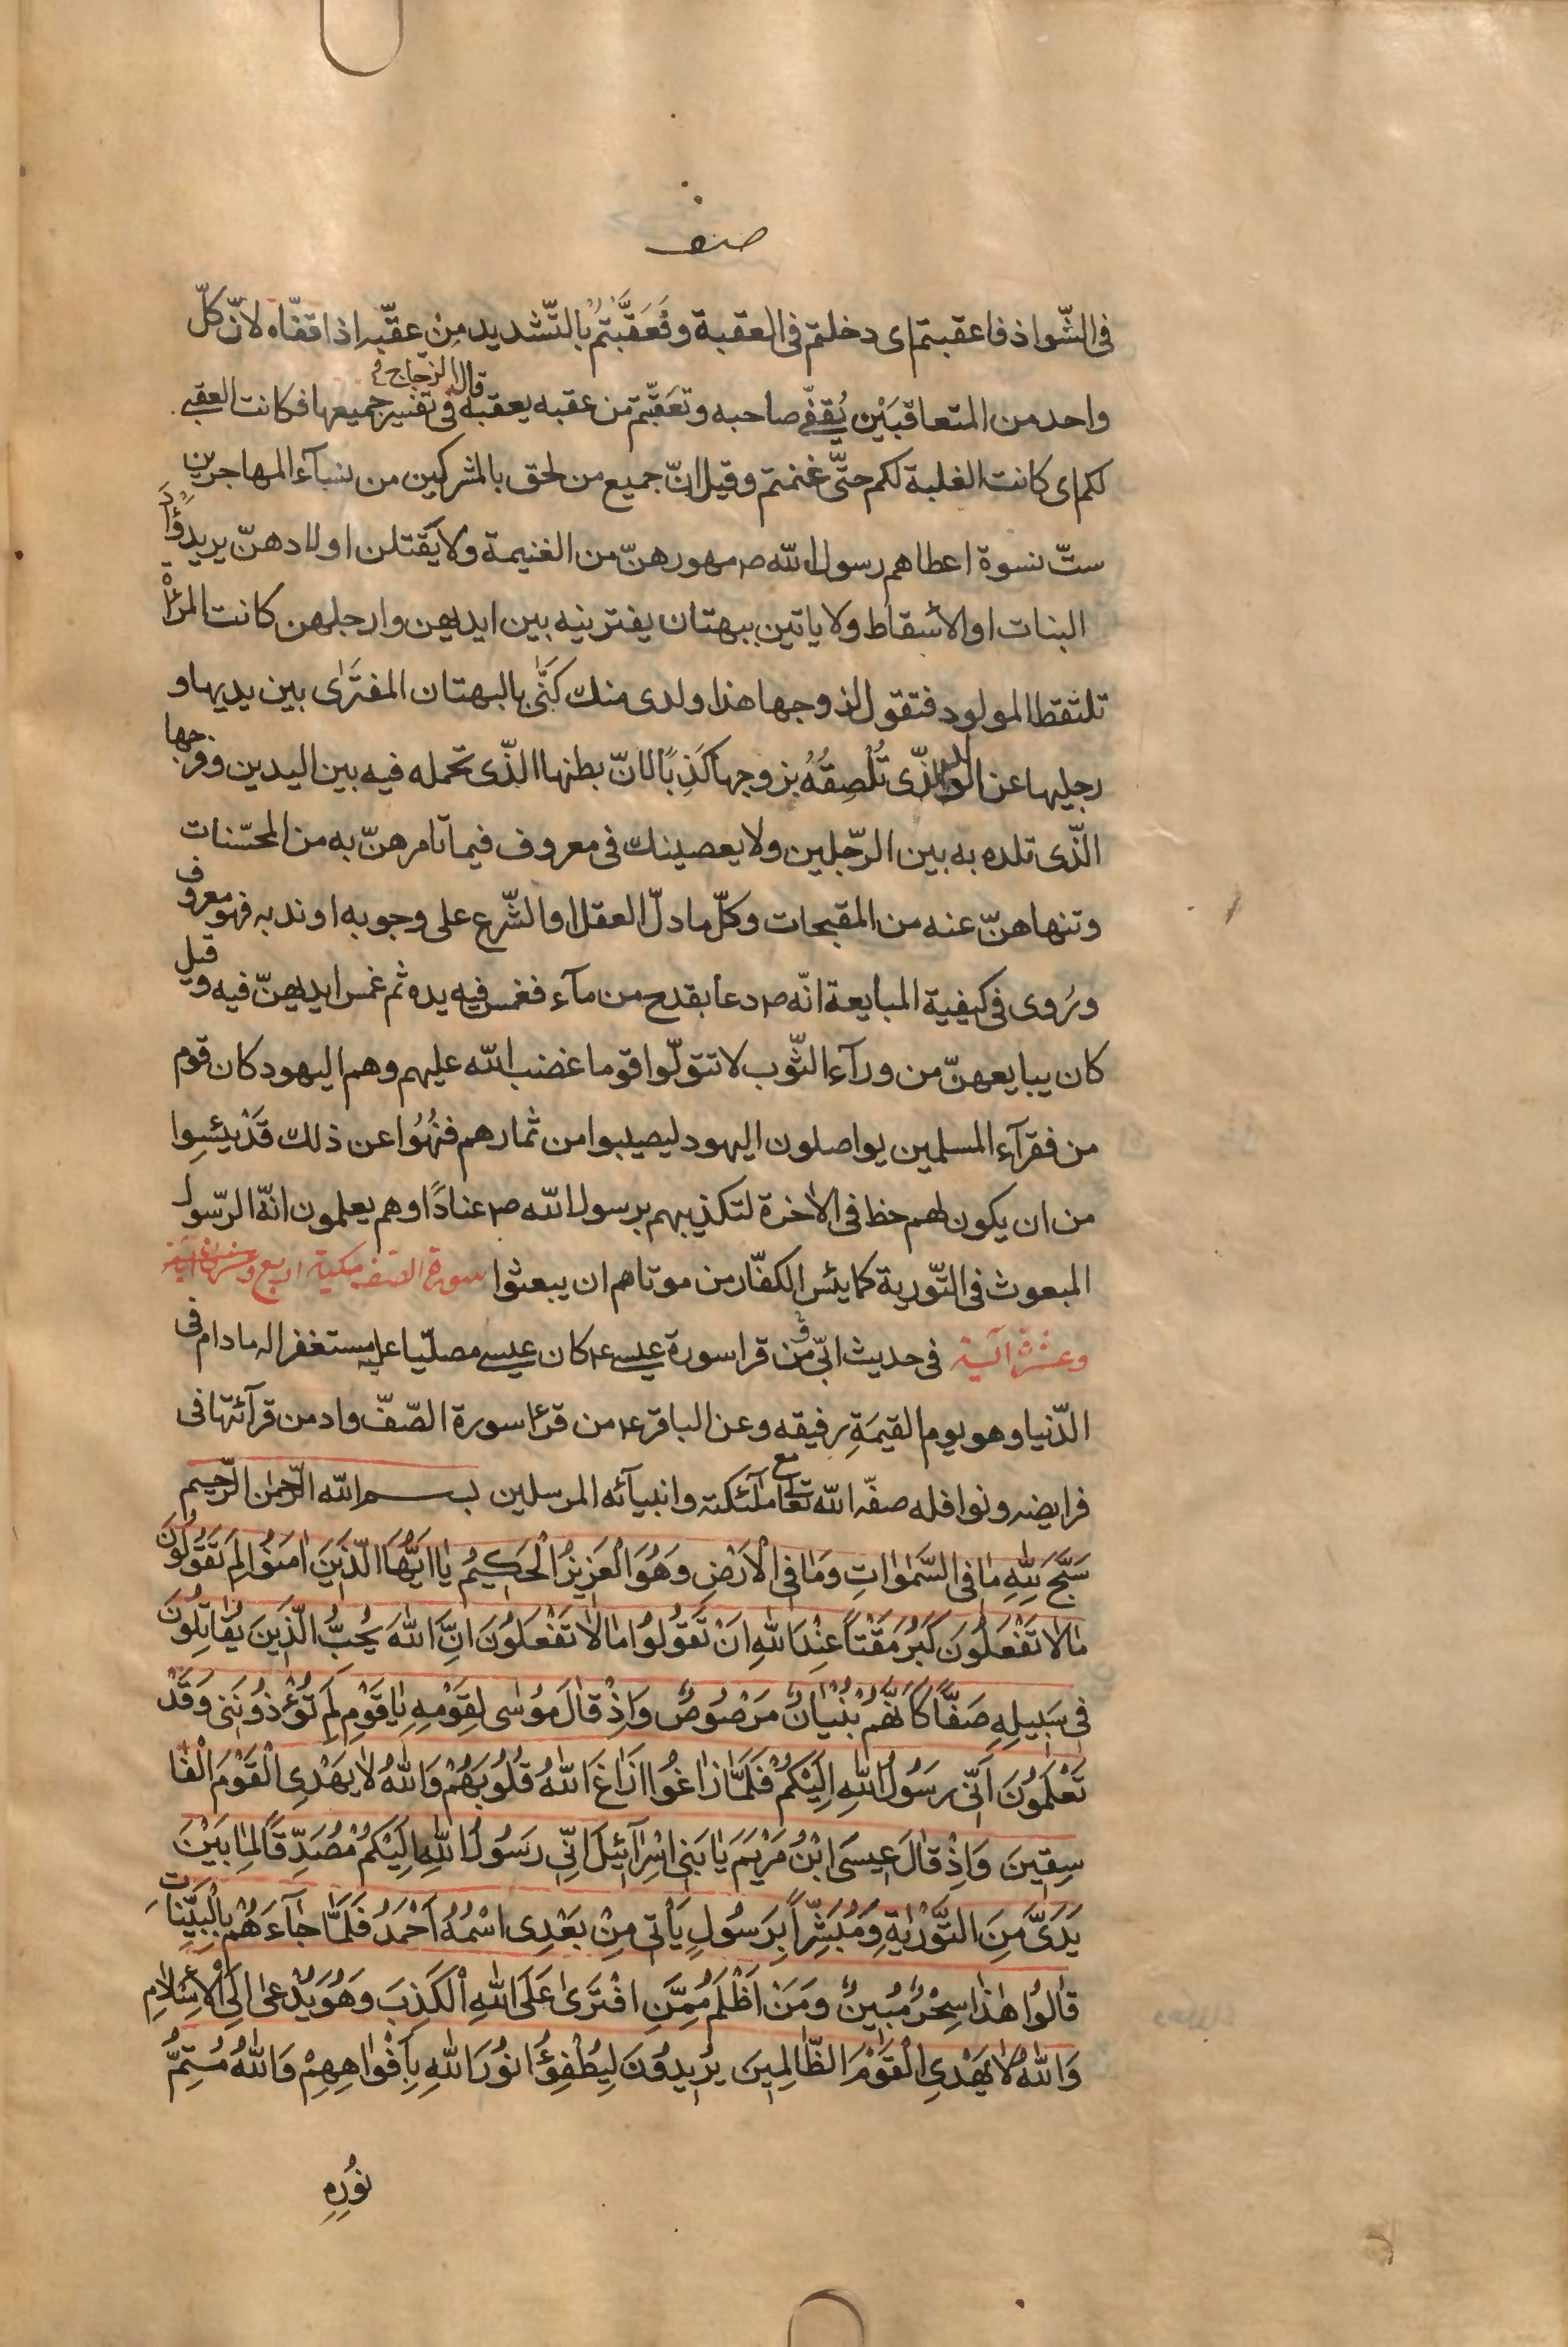 صف
فى الشّواذ فاعقبتم اى دخلتم فى العقبة وفَعَقَّبْتُمْ بالتّشديد مِنْ عقّبه اذا قفّاه لانّ كلّ
واحد من المتعاقبَيْن يُقفّى صاحبه وتعَقّبتم من عقبه يعقبه قاله الزّجاج فى تفسير جميعها فكانت العقبى
لكم اى كانت الغلبة لكم حتّى غنمتم وقيل انّ جميع من لحق بالمشركين من نسآء المهاجرين
ستّ نسوة اعطاهم رسول الله ص مهورهنّ من الغنيمة ولا يَقتلن اولادهنّ يريد وَأْد
البنات او الأسقاط ولا ياتين ببهتان يفترينه بين ايديهن وارجلهن كانت المرأة
تلتقط المولود فتقول لزوجها هذا ولدى منك كَنّى بالبهتان المفترَى بين يديها و
رجليها عن الولد الّذى تُلْصِقُهُ بزوجها كَذِبًا لانّ بطنها الّذى تحمله فيه بين اليدين وفرجها
الّذى تلده به بين الرّجلين ولا يعصينك فى معروف فيما تامرهنّ به من المحسّنات
وتنهاهنّ عنه من المقبحات وكلّ ما دلّ العقل او الشّرع على وجوبه او ندبه فهو معروف
ورُوى فى كيفية المبايعة انّه ص دعا بقدح من مآء فغمس فيه يده ثم غمس ايديهنّ فيه وقيل
كان يبايعهنّ من ورآء الثّوب لا تتولّوا قوما غضب الله عليهم وهم اليهود كان قوم
من فقرآء المسلمين يواصلون اليهود ليصيبوا من ثمارهم فنُهُوا عن ذلك قَدْ يئسِوا
من ان يكون لهم حظ فى الاخرة لتكذيبهم برسول الله ص عنادًا وهم يعلمون انّه الرّسول
المبعوث فى التّورية كما يئس الكفّار من موتاهم ان يبعثوا سورة الصف مكية اربع وعشرة آية
وعشرة آية فى حديث ابىّ ومن قرا سورة عيسى ع كان عيسى مصلّيا عليه مستغفرا له مادام فى
الدّنيا وهو يوم القيمَةِ رفيقه وعن الباقر ع من قرءا سورة الصّفّ وادمن قرآئتها فى
فرايضه ونوافله صفّه الله تعالى مع ملٓئكته وانبيآئه المرسلين بسم الله الرّحمن الرّحيم
سَبَّحَ لِلّٰهِ مٰا فِى السَّمٰوٰاتِ وَمٰا فِى الْاَرْضِ وَهُوَ الْعَزِيزُ الْحَكِيمُ يٰا اَيُّهَا الَّذِينَ اٰمَنُوا لِمَ تَقُولُونَ
مٰا لٰا تَفْعَلُونَ كَبُرَ مَقْتاً عِنْدَ اللّٰهِ اَنْ تَقُولُوا مٰا لٰا تَفْعَلُونَ اِنَّ اللّٰهَ يُحِبُّ الَّذِينَ يُقٰاتِلُونَ
فِى سَبِيلِهِ صَفّاً كَاَنَّهُمْ بُنْيٰانٌ مَرْصُوصٌ وَاِذْ قٰالَ مُوسٰى لِقَوْمِهِ يٰا قَوْمِ لِمَ تُؤْذُونَنِى وَقَدْ
تَعْلَمُونَ اَنِّى رَسُولُ اللّٰهِ اِلَيْكُمْ فَلَمّٰا زٰاغُوا اَزٰاغَ اللّٰهُ قُلُوبَهُمْ وَاللّٰهُ لٰا يَهْدِى الْقَوْمَ الْفٰا
سِقِينَ وَاِذْ قٰالَ عِيسَى ابْنُ مَرْيَمَ يٰا بَنِى اِسْرٰآئِيلَ اِنِّى رَسُولُ اللّٰهِ اِلَيْكُمْ مُصَدِّقاً لِمٰا بَيْنَ
يَدَىَّ مِنَ التَّوْرٰيةِ وَمُبَشِّراً بِرَسُولٍ يَاْتِى مِنْ بَعْدِى اسْمُهُ اَحْمَدُ فَلَمّٰا جٰآءَهُمْ بِالْبَيِّنٰاتِ
قٰالُوا هٰذٰا سِحْرٌ مُبِينٌ وَمَنْ اَظْلَمُ مِمَّنِ افْتَرىٰ عَلَى اللّٰهِ الْكَذِبَ وَهُوَ يُدْعىٰ اِلَى الْاِسْلٰامِ
وَاللّٰهُ لٰا يَهْدِى الْقَوْمَ الظّٰالِمِينَ يُرِيدُونَ لِيُطْفِؤُا نُورَ اللّٰهِ بِاَفْوٰاهِهِمْ وَاللّٰهُ مُتِمُّ
نُورِهِ